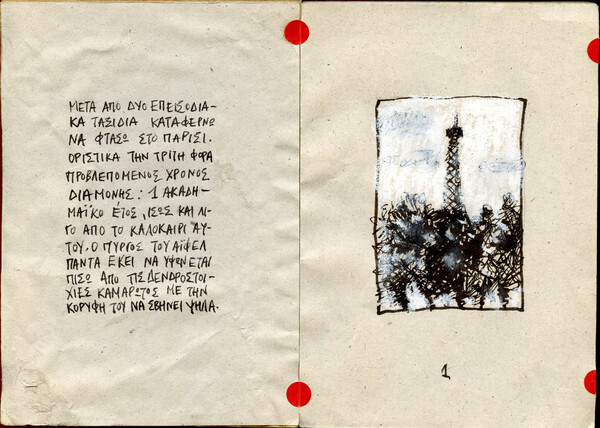 ΜΕΤΑ ΑΠΟ ΔΥΟ ΕΠΕΙΣΟΔΙΑ-
ΚΑ ΤΑΞΙΔΙΑ ΚΑΤΑΦΕΡΝΩ
ΝΑ ΦΤΑΣΩ ΣΤΟ ΠΑΡΙΣΙ.
ΟΡΙΣΤΙΚΑ ΤΗΝ ΤΡΙΤΗ ΦΟΡΑ
ΠΡΟΒΛΕΠΟΜΕΝΟΣ ΧΡΟΝΟΣ
ΔΙΑΜΟΝΗΣ: 1 ΑΚΑΔΗ-
ΜΑΪΚΟ ΕΤΟΣ, ΙΣΩΣ ΚΑΙ ΛΙ-
ΓΟ ΑΠΟ ΤΟ ΚΑΛΟΚΑΙΡΙ ΑΥ-
ΤΟΥ. Ο ΠΥΡΓΟΣ ΤΟΥ ΑΪΦΕΛ
ΠΑΝΤΑ ΕΚΕΙ ΝΑ ΥΨΩΝΕΤΑΙ
ΠΙΣΩ ΑΠΟ ΤΙΣ ΔΕΝΔΡΟΣΤΟΙ-
ΧΙΕΣ ΚΑΜΑΡΩΤΟΣ ΜΕ ΤΗΝ
ΚΟΡΥΦΗ ΤΟΥ ΝΑ ΣΒΗΝΕΙ ΨΗΛΑ.
1